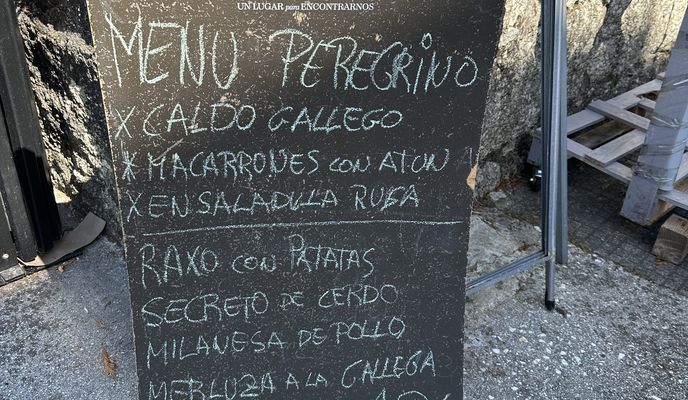 UN LUGAR para ENCONTRARNOS
MENU PEREGRINO
X CALDO GALLEGO
X MACARRONES CON ATUN
X ENSALADILLA RUSA
RAXO CON PATATAS
SECRETO DE CERDO
MILANESA DE POLLO
MERLUZA A LA GALLEGA